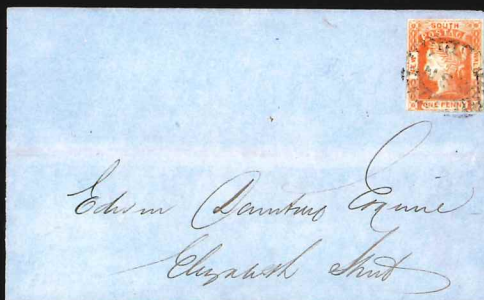 SOUTH
POSTAGE
ONE PENNY
Edwin Daintrey Esquire
Elizabeth Street